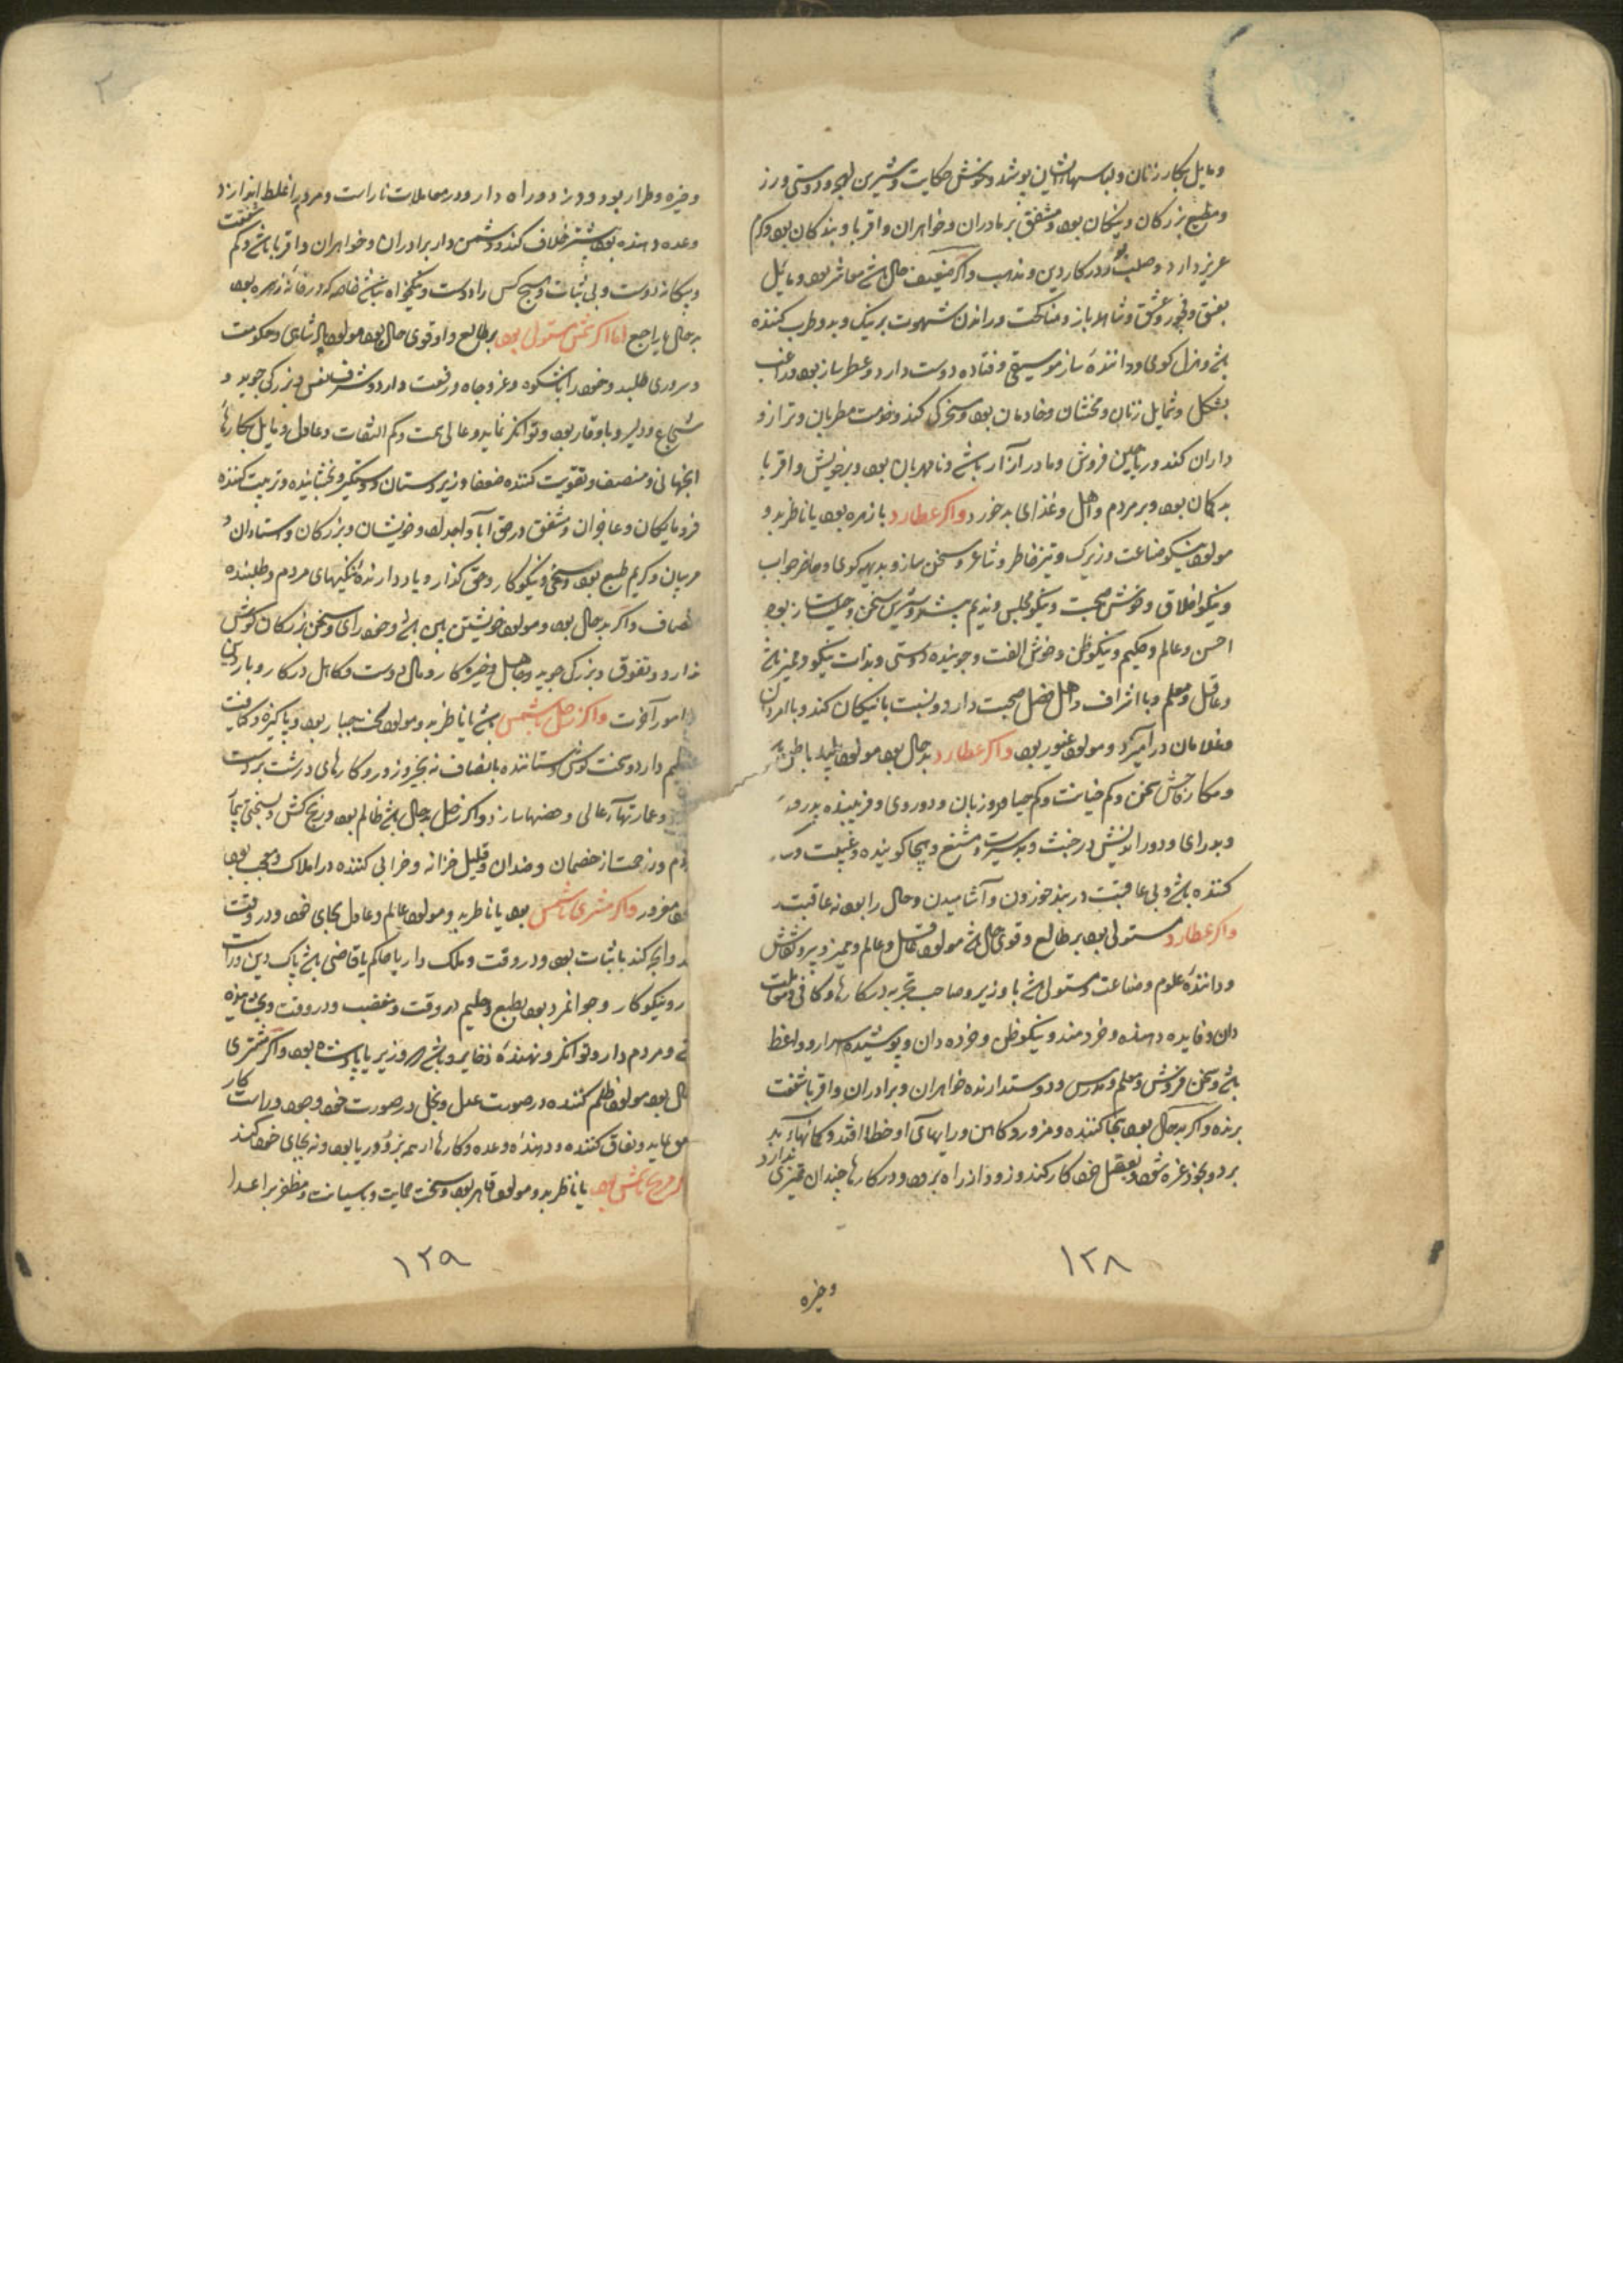 و مایل بکار زنان و لباسهاء ایشان پوشد و خوش حکایت و شیرین لهجه و دوستی ورز
و مطیع بزرکان و نیکان بود و مشفق بر مادران و خواهران و اقربا و بندکان بود و کرم
عزیز دارد و صلب بود در کار دین و مذهب و اکر ضعیف حال باشد معاشر بود و مایل
بفسق و فجور و عشق و شاهد باز و مناکحت و راندن شهوت بر نیک و بد و طرب کننده
باشد و هزل کوی و داننده ساز موسیقی و فتاده دوست دارد و عطر ساز بود و راغب
بشکل و شمایل زنان و مخنثان و خادمان بود و مسخرکی کند و خدمت مطربان و ترازو
داران کند و ریاحین فروش و مادر آزار باشد و نامهربان بود و بر خویش و اقربا
بد کمان بود و بر مردم و اهل و غذای بد خورد واکر عطارد با زهره بود یا ناظر بدو
مولود نیکو صناعت و زیرک و تیز خاطر و شاعر و سخن ساز و بدیهه کوی و حاضر جواب
و نیکو اخلاق و خوش صحبت و نیکو مجلس و ندیم پیشه و شیرین سخن و حیلت ساز بود
احسن و عالم و حکیم و نیکو ظن و خوش الفت و جوینده دوستی و بذات نیکو و ممیز باشد
و عاقل و معلم و با اشراف و اهل فضل صحبت دارد و نسبت با نیکان کند و با امردان
و غلامان در آمیزد و مولود غیور بود واکر عطارد بد حال بود مولود پلید باطن باشد
و مکار و فحش سخن و کم خیانت و کم حیا و دو زبان و دو روی و فریبنده
و بد رای و دور اندیش در خبث و بد سیرت و مشنع و هجا کوینده و غیبت
کننده باشد و بی عاقبت در بند خوردن و آشامیدن و حال را بود نه عاقبت
واکر عطارد مستولی بود بر طالع و قوی حال باشد مولود عاقل و عالم و ممیز و پر و نقاش
و داننده علوم و صناعت مستولی باشد یا وزیر و صاحب تجربه در کارها و کافی و معاملت
دان و فایده دهنده و خردمند و نیکو ظن و خرده دان و پوشیده اسرار و واعظ
باشد و سخن فروش و معلم و مدرس و دوستدارنده خواهران و برادران و اقربا شفقت
برنده و اکر بد حال بود هجا کننده و مزور و کاهن و رایهای او خطا افتد و کمانهاء بد
برد و بخود غره شود و بعقل خود کار کند و زود از راه برود و در کارها چندان تمیزی ندارد
۱۲۸
و خیره
و خیره و طرار بود و دزد و راه دار و در معاملات ناراست و مردم را غلط اندازد
وعده دهنده بود و بیشتر خلاف کند و دشمن دار برادران و خواهران و اقربا باشد و کم شفقت
و بیکانه دوست و بی ثبات و هیچ کس را دوست و نیکخواه نباشد خاصه که در خانه زهره بود
بد حال یا راجع اما اکر شمس مستولی بود بر طالع و او قوی حال بود مولود پادشاهی و حکومت
و سروری طلبد و خود را با شکوه و عز و جاه و رفعت دارد و شرف نفس و بزرکی جوید و
شجاع و دلیر و با وقار بود و توانکر نماید و عالی همت و کم التفات و عادل و مایل بکارهاء
اینجهانی و منصف و تقویت کننده ضعفا و زیر دستان و دستکیر و بخشاینده و تربیت کننده
فرومایکان و عاجزان و مشفق در حق آبا و اجداد و خویشان و بزرکان و استادان و
مربیان و کریم طبع بود و سخی و نیکوکار و حق کذار و یاد دارنده نیکیهای مردم و طلبنده
انصاف و اکر بد حال بود مولود خویشتن بین باشد و خود رای و سخن بزرکان کوش
ندارد و تفوق و بزرکی جوید و جاهل و خیره کار و مال دوست و کاهل در کار و بار دنیا
و امور آخرت واکر زحل با شمس باشد یا ناظر بدو مولود سخت جبار بود و پاکیزه و کفایت
عظیم دارد و سخت کوش و ستاننده با انصاف نه بخیر و زور و کارهای درشت بر دست
و عمارتهاء عالی و حصنها سازد و اکر زحل بد حال باشد ظالم بود و رنج کش و سختی
و زحمت از خصمان و ضدان و قلیل خزانه و خرابی کننده در املاک و معجب بود
مغرور واکر مشتری با شمس بود یا ناظر بدو مولود عالم و عادل بجای خود و در وقت
و انچه کند با ثبات بود و در وقت و ملک دار یا حاکم یا قاضی باشد پاک دین و راست
رو نیکوکار و جوانمرد بود بطبع و حلیم در وقت و غضب و در وقت و بخشاینده
و مردم دار و توانکر و نهنده ذخایر و باشد که وزیر یا پادشاه بود و اکر مشتری
حال بود مولود ظلم کننده در صورت عدل و بخل در صورت خود و جود و راست کار
نماید و نفاق کننده و دهنده وعده و کارها را همه بزور و ریا بود و نه بجای خود کند
اکر مریخ با شمس بود یا ناظر بدو مولود قاهر بود و سخت حمایت و با سیاست و مظفر بر اعدا
۱۲۹
۲